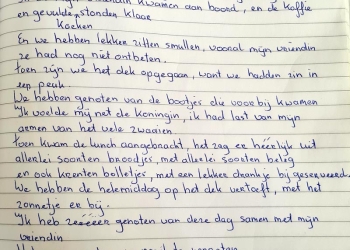 kwamen aan boord, en de koffie
en gevulde stonden klaar
koeken
En we hebben lekker zitten smullen, vooral mijn vriendin
ze had nog niet ontbeten.
Toen zijn we het dek opgegaan, want we hadden zin in
een peuk.
We hebben genoten van de bootjes die voorbij kwamen
Ik voelde mij net de koningin, ik had last van mijn
armen van het vele zwaaien
Toen kwam de lunch aangebracht, het zag er heerlijk uit
allerlei soorten broodjes, met allerlei soorten beleg
en ook krenten bolletjes, met een lekker drankje bij geserveerd.
We hebben de hele middag op het dek vertoeft, met het
zonnetje er bij.
Ik heb zeeéeér genoten van deze dag samen met mijn
vriendin